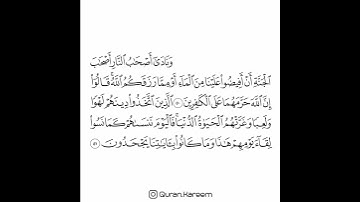 وَنَادَىٰٓ أَصْحَٰبُ ٱلنَّارِ أَصْحَٰبَ
ٱلْجَنَّةِ أَنْ أَفِيضُوا۟ عَلَيْنَا مِنَ ٱلْمَآءِ أَوْ مِمَّا رَزَقَكُمُ ٱللَّهُ ۚ قَالُوٓا۟
إِنَّ ٱللَّهَ حَرَّمَهُمَا عَلَى ٱلْكَٰفِرِينَ ٥٠ ٱلَّذِينَ ٱتَّخَذُوا۟ دِينَهُمْ لَهْوًا
وَلَعِبًا وَغَرَّتْهُمُ ٱلْحَيَوٰةُ ٱلدُّنْيَا ۚ فَٱلْيَوْمَ نَنسَىٰهُمْ كَمَا نَسُوا۟
لِقَآءَ يَوْمِهِمْ هَٰذَا وَمَا كَانُوا۟ بِـَٔايَٰتِنَا يَجْحَدُونَ ٥١
Quran.Kareem